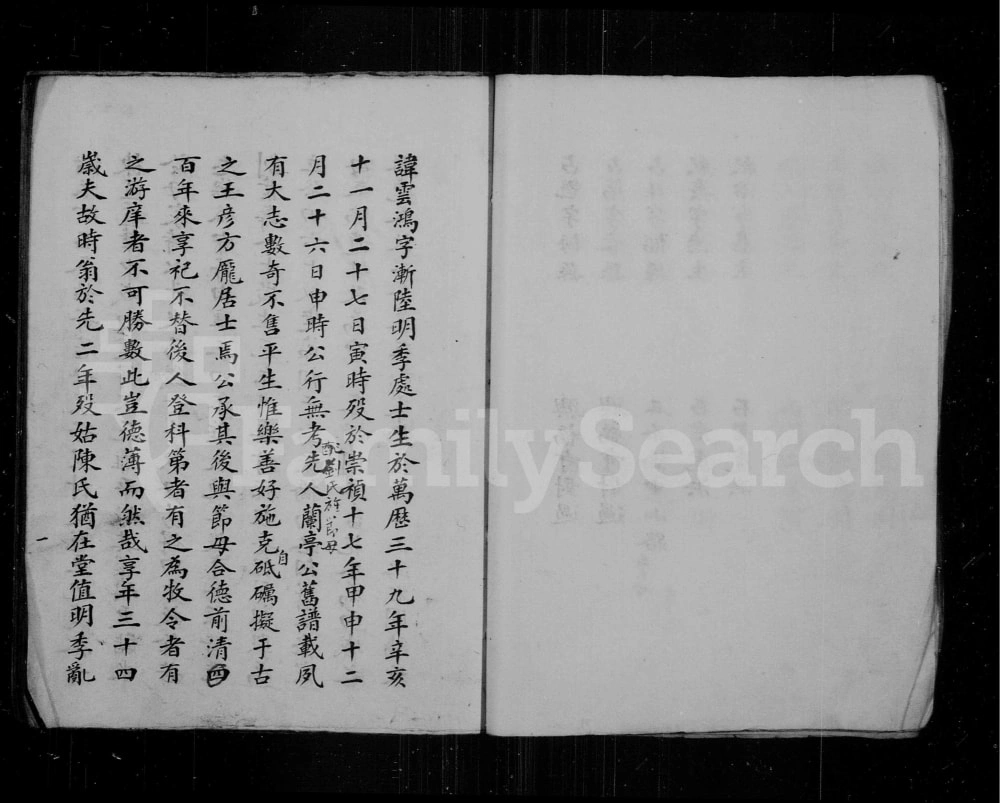 諱雲鴻字漸陸明季處士生於萬歷三十九年辛亥
十一月二十七日寅時歿於崇禎十七年甲申十二
月二十六日申時公行無考先人蘭亭公舊譜載夙
配劉氏旌節母
有大志數奇不售平生惟樂善好施克自砥礪擬于古
之王彦方龎居士焉公承其後與節母合德前清四
百年來享祀不替後人登科第者有之為牧令者有
之游庠者不可勝數此豈德薄而然哉享年三十四
歲夫故時翁於先二年歿姑陳氏猶在堂值明季亂
一
FamilySearch